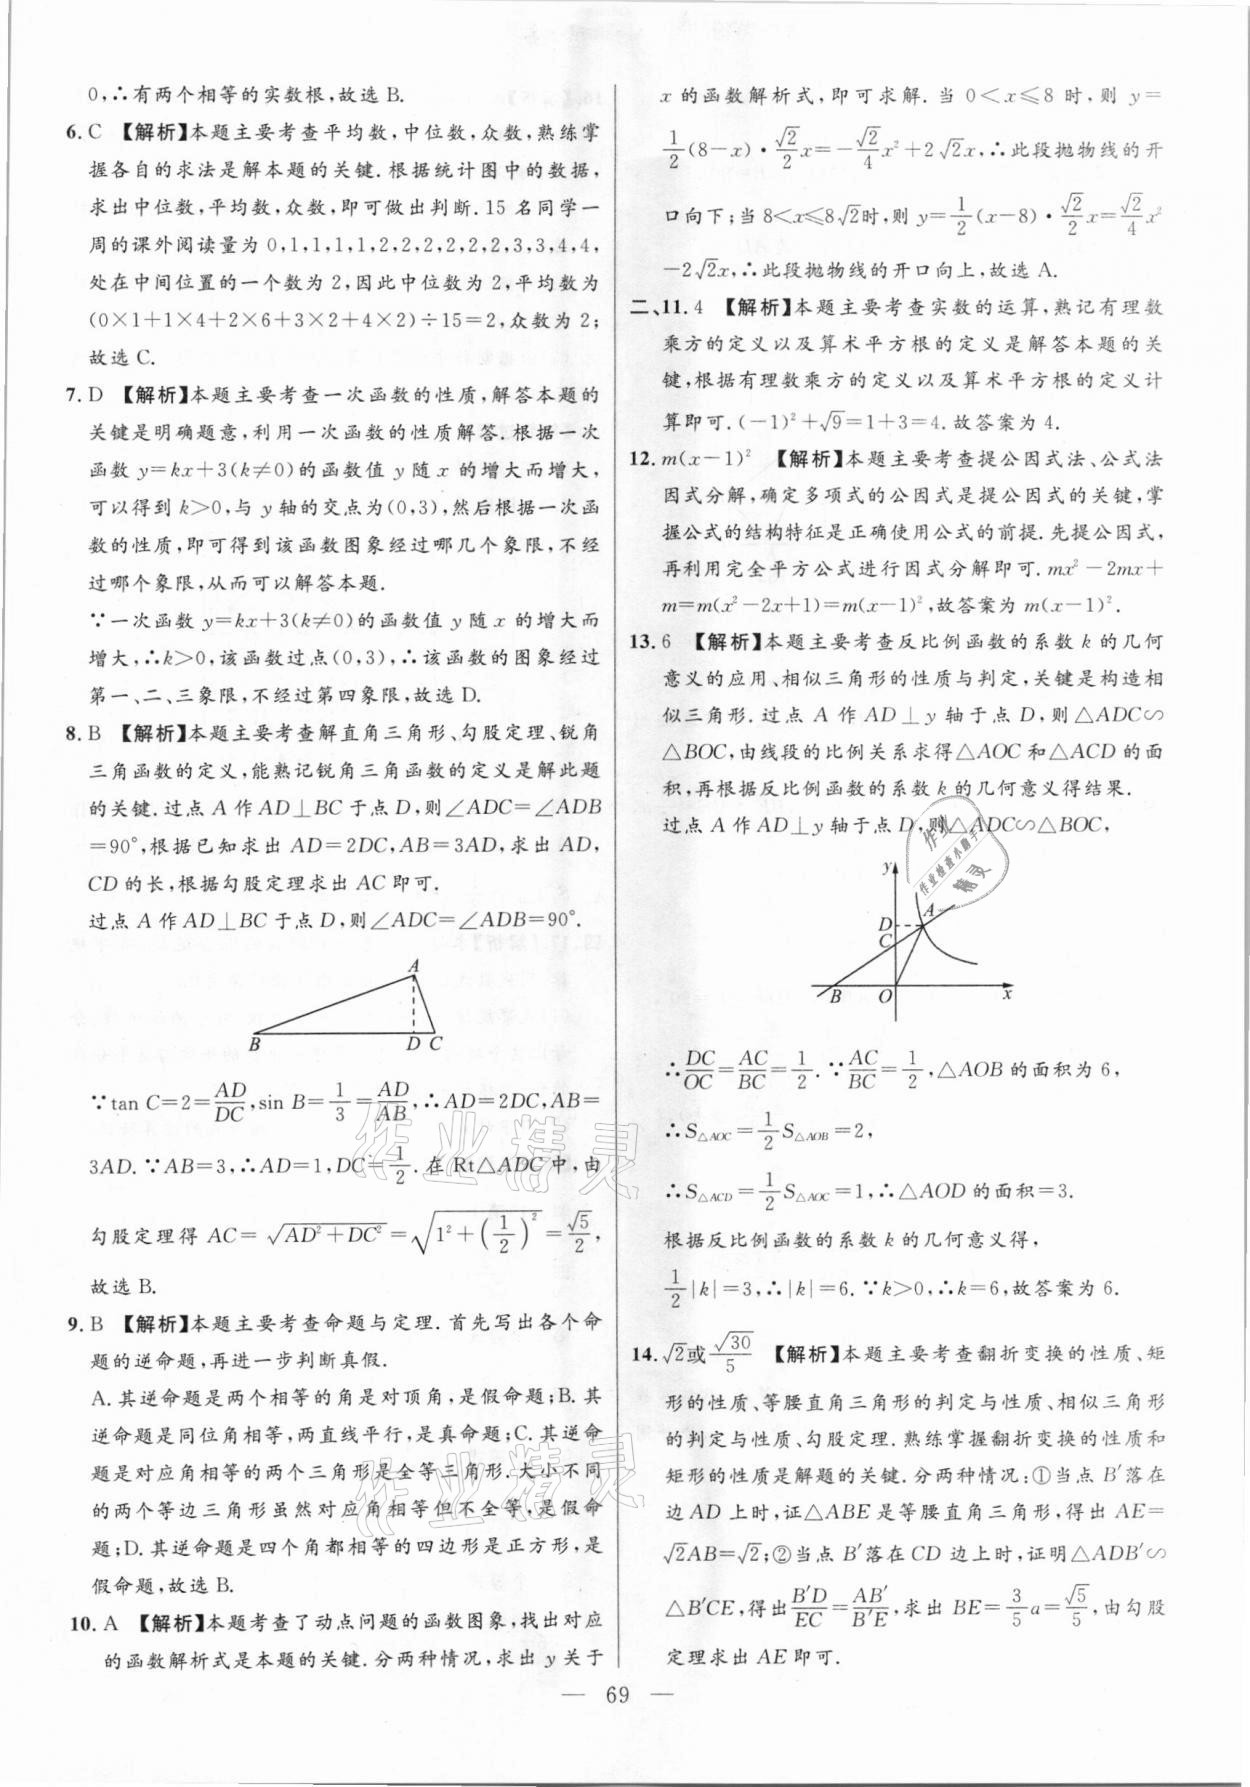 0,∴有两个相等的实数根,故选 B.
6. C 【解析】本题主要考查平均数,中位数,众数,熟练掌
握各自的求法是解本题的关键.根据统计图中的数据,
求出中位数,平均数,众数,即可做出判断.15 名同学一
周的课外阅读量为 0,1,1,1,1,2,2,2,2,2,2,3,3,4,4,
处在中间位置的一个数为 2,因此中位数为 2,平均数为
(0×1+1×4+2×6+3×2+4×2)÷15=2,众数为 2;
故选 C.
7. D 【解析】本题主要考查一次函数的性质,解答本题的
关键是明确题意,利用一次函数的性质解答.根据一次
函数 y=kx+3(k≠0)的函数值 y 随 x 的增大而增大,
可以得到 k>0,与 y 轴的交点为(0,3),然后根据一次函
数的性质,即可得到该函数图象经过哪几个象限,不经
过哪个象限,从而可以解答本题.
∵一次函数 y=kx+3(k≠0)的函数值 y 随 x 的增大而
增大,∴k>0,该函数过点(0,3),∴该函数的图象经过
第一、二、三象限,不经过第四象限,故选 D.
8. B 【解析】本题主要考查解直角三角形、勾股定理、锐角
三角函数的定义,能熟记锐角三角函数的定义是解此题
的关键.过点 A 作 AD⊥BC 于点 D,则∠ADC=∠ADB
=90°,根据已知求出 AD=2DC,AB=3AD,求出 AD,
CD 的长,根据勾股定理求出 AC 即可.
过点 A 作 AD⊥BC 于点 D,则∠ADC=∠ADB=90°.
A
B D C
∵tan C=2=AD/DC,sin B=1/3=AD/AB,∴AD=2DC,AB=
3AD.∵AB=3,∴AD=1,DC=1/2.在 Rt△ADC 中,由
勾股定理得 AC=√(AD²+DC²)=√(1²+(1/2)²)=√5/2,
故选 B.
9. B 【解析】本题主要考查命题与定理.首先写出各个命
题的逆命题,再进一步判断真假.
A.其逆命题是两个相等的角是对顶角,是假命题;B.其
逆命题是同位角相等,两直线平行,是真命题;C.其逆命
题是对应角相等的两个三角形是全等三角形.大小不同
的两个等边三角形虽然对应角相等但不全等,是假命
题;D.其逆命题是四个角都相等的四边形是正方形,是
假命题,故选 B.
10. A 【解析】本题考查了动点问题的函数图象,找出对应
的函数解析式是本题的关键.分两种情况,求出 y 关于
x 的函数解析式,即可求解.当 0<x≤8 时,则 y=
1/2(8-x)·√2/2x=-√2/4x²+2√2x,∴此段抛物线的开
口向下;当 8<x≤8√2时,则 y=1/2(x-8)·√2/2x=√2/4x²
-2√2x,∴此段抛物线的开口向上,故选 A.
二、11. 4 【解析】本题主要考查实数的运算,熟记有理数
乘方的定义以及算术平方根的定义是解答本题的关
键,根据有理数乘方的定义以及算术平方根的定义计
算即可.(-1)²+√9=1+3=4.故答案为 4.
12. m(x-1)² 【解析】本题主要考查提公因式法、公式法
因式分解,确定多项式的公因式是提公因式的关键,掌
握公式的结构特征是正确使用公式的前提.先提公因式,
再利用完全平方公式进行因式分解即可.mx²-2mx+
m=m(x²-2x+1)=m(x-1)²,故答案为 m(x-1)².
13. 6 【解析】本题主要考查反比例函数的系数 k 的几何
意义的应用、相似三角形的性质与判定,关键是构造相
似三角形.过点 A 作 AD⊥y 轴于点 D,则△ADC∽
△BOC,由线段的比例关系求得△AOC 和△ACD 的面
积,再根据反比例函数的系数 k 的几何意义得结果.
过点 A 作 AD⊥y 轴于点 D,则△ADC∽△BOC,
作业
作业检查小助手
精灵
y
A
D
C
B O x
∴DC/OC=AC/BC=1/2.∵AC/BC=1/2,△AOB 的面积为 6,
∴S△AOC=1/2S△AOB=2,
∴S△ACD=1/2S△AOC=1,∴△AOD 的面积=3.
根据反比例函数的系数 k 的几何意义得,
1/2|k|=3,∴|k|=6.∵k>0,∴k=6,故答案为 6.
14. √2或√30/5 【解析】本题主要考查翻折变换的性质、矩
形的性质、等腰直角三角形的判定与性质、相似三角形
的判定与性质、勾股定理.熟练掌握翻折变换的性质和
矩形的性质是解题的关键.分两种情况:①当点 B′落在
边 AD 上时,证△ABE 是等腰直角三角形,得出 AE=
√2AB=√2;②当点 B′落在 CD 边上时,证明△ADB′∽
△B′CE,得出B′D/EC=AB′/B′E,求出 BE=3/5a=√5/5,由勾股
定理求出 AE 即可.
作业精灵
作业精灵
— 69 —